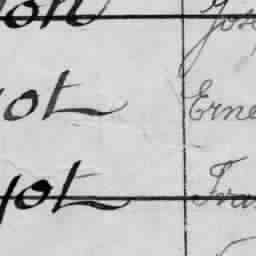 on Jos
yot Erne
yot Fran